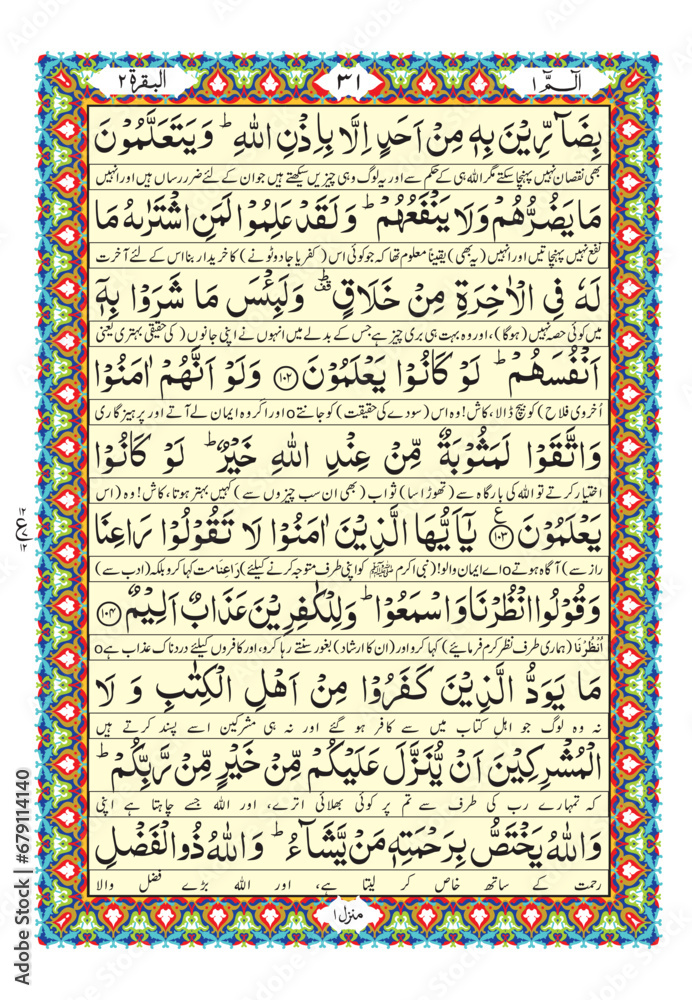 البقرة ٢
٣١
الٓمّٓ ١
بِضَآرِّيْنَ بِهٖ مِنْ اَحَدٍ اِلَّا بِاِذْنِ اللهِ ؕ وَيَتَعَلَّمُوْنَ
بھی نقصان نہیں پہنچا سکتے مگر اللہ ہی کے حکم سے اور یہ لوگ وہی چیزیں سیکھتے ہیں جو ان کے لئے ضرر رساں ہیں اور انہیں
مَا يَضُرُّهُمْ وَلَا يَنْفَعُهُمْ ؕ وَلَقَدْ عَلِمُوْا لَمَنِ اشْتَرٰىهُ مَا
نفع نہیں پہنچاتیں اور انہیں (یہ بھی) یقیناً معلوم تھا کہ جو کوئی اس (کفر یا جادو ٹونے) کا خریدار بنا اس کے لئے آخرت
لَهٗ فِي الْاٰخِرَةِ مِنْ خَلَاقٍ ؕ وَلَبِئْسَ مَا شَرَوْا بِهٖٓ
میں کوئی حصہ نہیں (ہوگا)، اور وہ بہت ہی بری چیز ہے جس کے بدلے میں انہوں نے اپنی جانوں (کی حقیقی بہتری یعنی
اَنْفُسَهُمْ ؕ لَوْ كَانُوْا يَعْلَمُوْنَ ﴿١٠٢﴾ وَلَوْ اَنَّهُمْ اٰمَنُوْا
اُخروی فلاح) کو بیچ ڈالا، کاش! وہ اس (سودے کی حقیقت) کو جانتےo اور اگر وہ ایمان لے آتے اور پرہیزگاری
وَاتَّقَوْا لَمَثُوْبَةٌ مِّنْ عِنْدِ اللهِ خَيْرٌ ؕ لَوْ كَانُوْا
اختیار کرتے تو اللہ کی بارگاہ سے (تھوڑا سا) ثواب (بھی ان سب چیزوں سے) کہیں بہتر ہوتا، کاش! وہ (اس
يَعْلَمُوْنَ ﴿١٠٣﴾ ع يٰٓاَيُّهَا الَّذِيْنَ اٰمَنُوْا لَا تَقُوْلُوْا رَاعِنَا
راز سے) آگاہ ہوتےo اے ایمان والو! (نبی اکرم ﷺ کو اپنی طرف متوجہ کرنے کیلئے) رَاعِنَا مت کہا کرو بلکہ (ادب سے)
وَقُوْلُوا انْظُرْنَا وَاسْمَعُوْا ؕ وَلِلْكٰفِرِيْنَ عَذَابٌ اَلِيْمٌ ﴿١٠٤﴾
اُنْظُرْنَا (ہماری طرف نظرِ کرم فرمائیے) کہا کرو اور (ان کا ارشاد) بغور سنتے رہا کرو، اور کافروں کیلئے دردناک عذاب ہےo
مَا يَوَدُّ الَّذِيْنَ كَفَرُوْا مِنْ اَهْلِ الْكِتٰبِ وَ لَا
نہ وہ لوگ جو اہلِ کتاب میں سے کافر ہو گئے اور نہ ہی مشرکین اسے پسند کرتے ہیں
الْمُشْرِكِيْنَ اَنْ يُّنَزَّلَ عَلَيْكُمْ مِّنْ خَيْرٍ مِّنْ رَّبِّكُمْ ؕ
کہ تمہارے رب کی طرف سے تم پر کوئی بھلائی اترے، اور اللہ جسے چاہتا ہے اپنی
وَاللهُ يَخْتَصُّ بِرَحْمَتِهٖ مَنْ يَّشَآءُ ؕ وَاللهُ ذُو الْفَضْلِ
رحمت کے ساتھ خاص کر لیتا ہے، اور اللہ بڑے فضل والا
منزل ١
Adobe Stock | #679114140